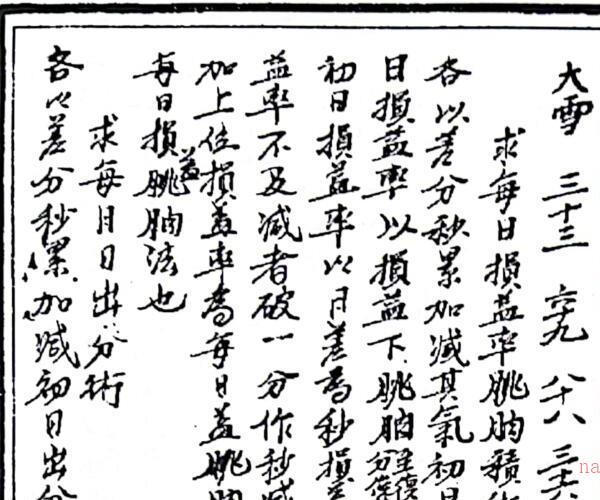 大雪 三十三 六十九 八十八 三十
求每日損益率朓朒積
各以差分秒累加減其氣初日
日損益率以損益下朓朒
初日損益率以日差為秒損
益率不及減者破一分作秒減
加上位損益率為每日益朓朒
每日損益朓朒法也
求每月日出分術
各以差分秒累加減初日出分
na